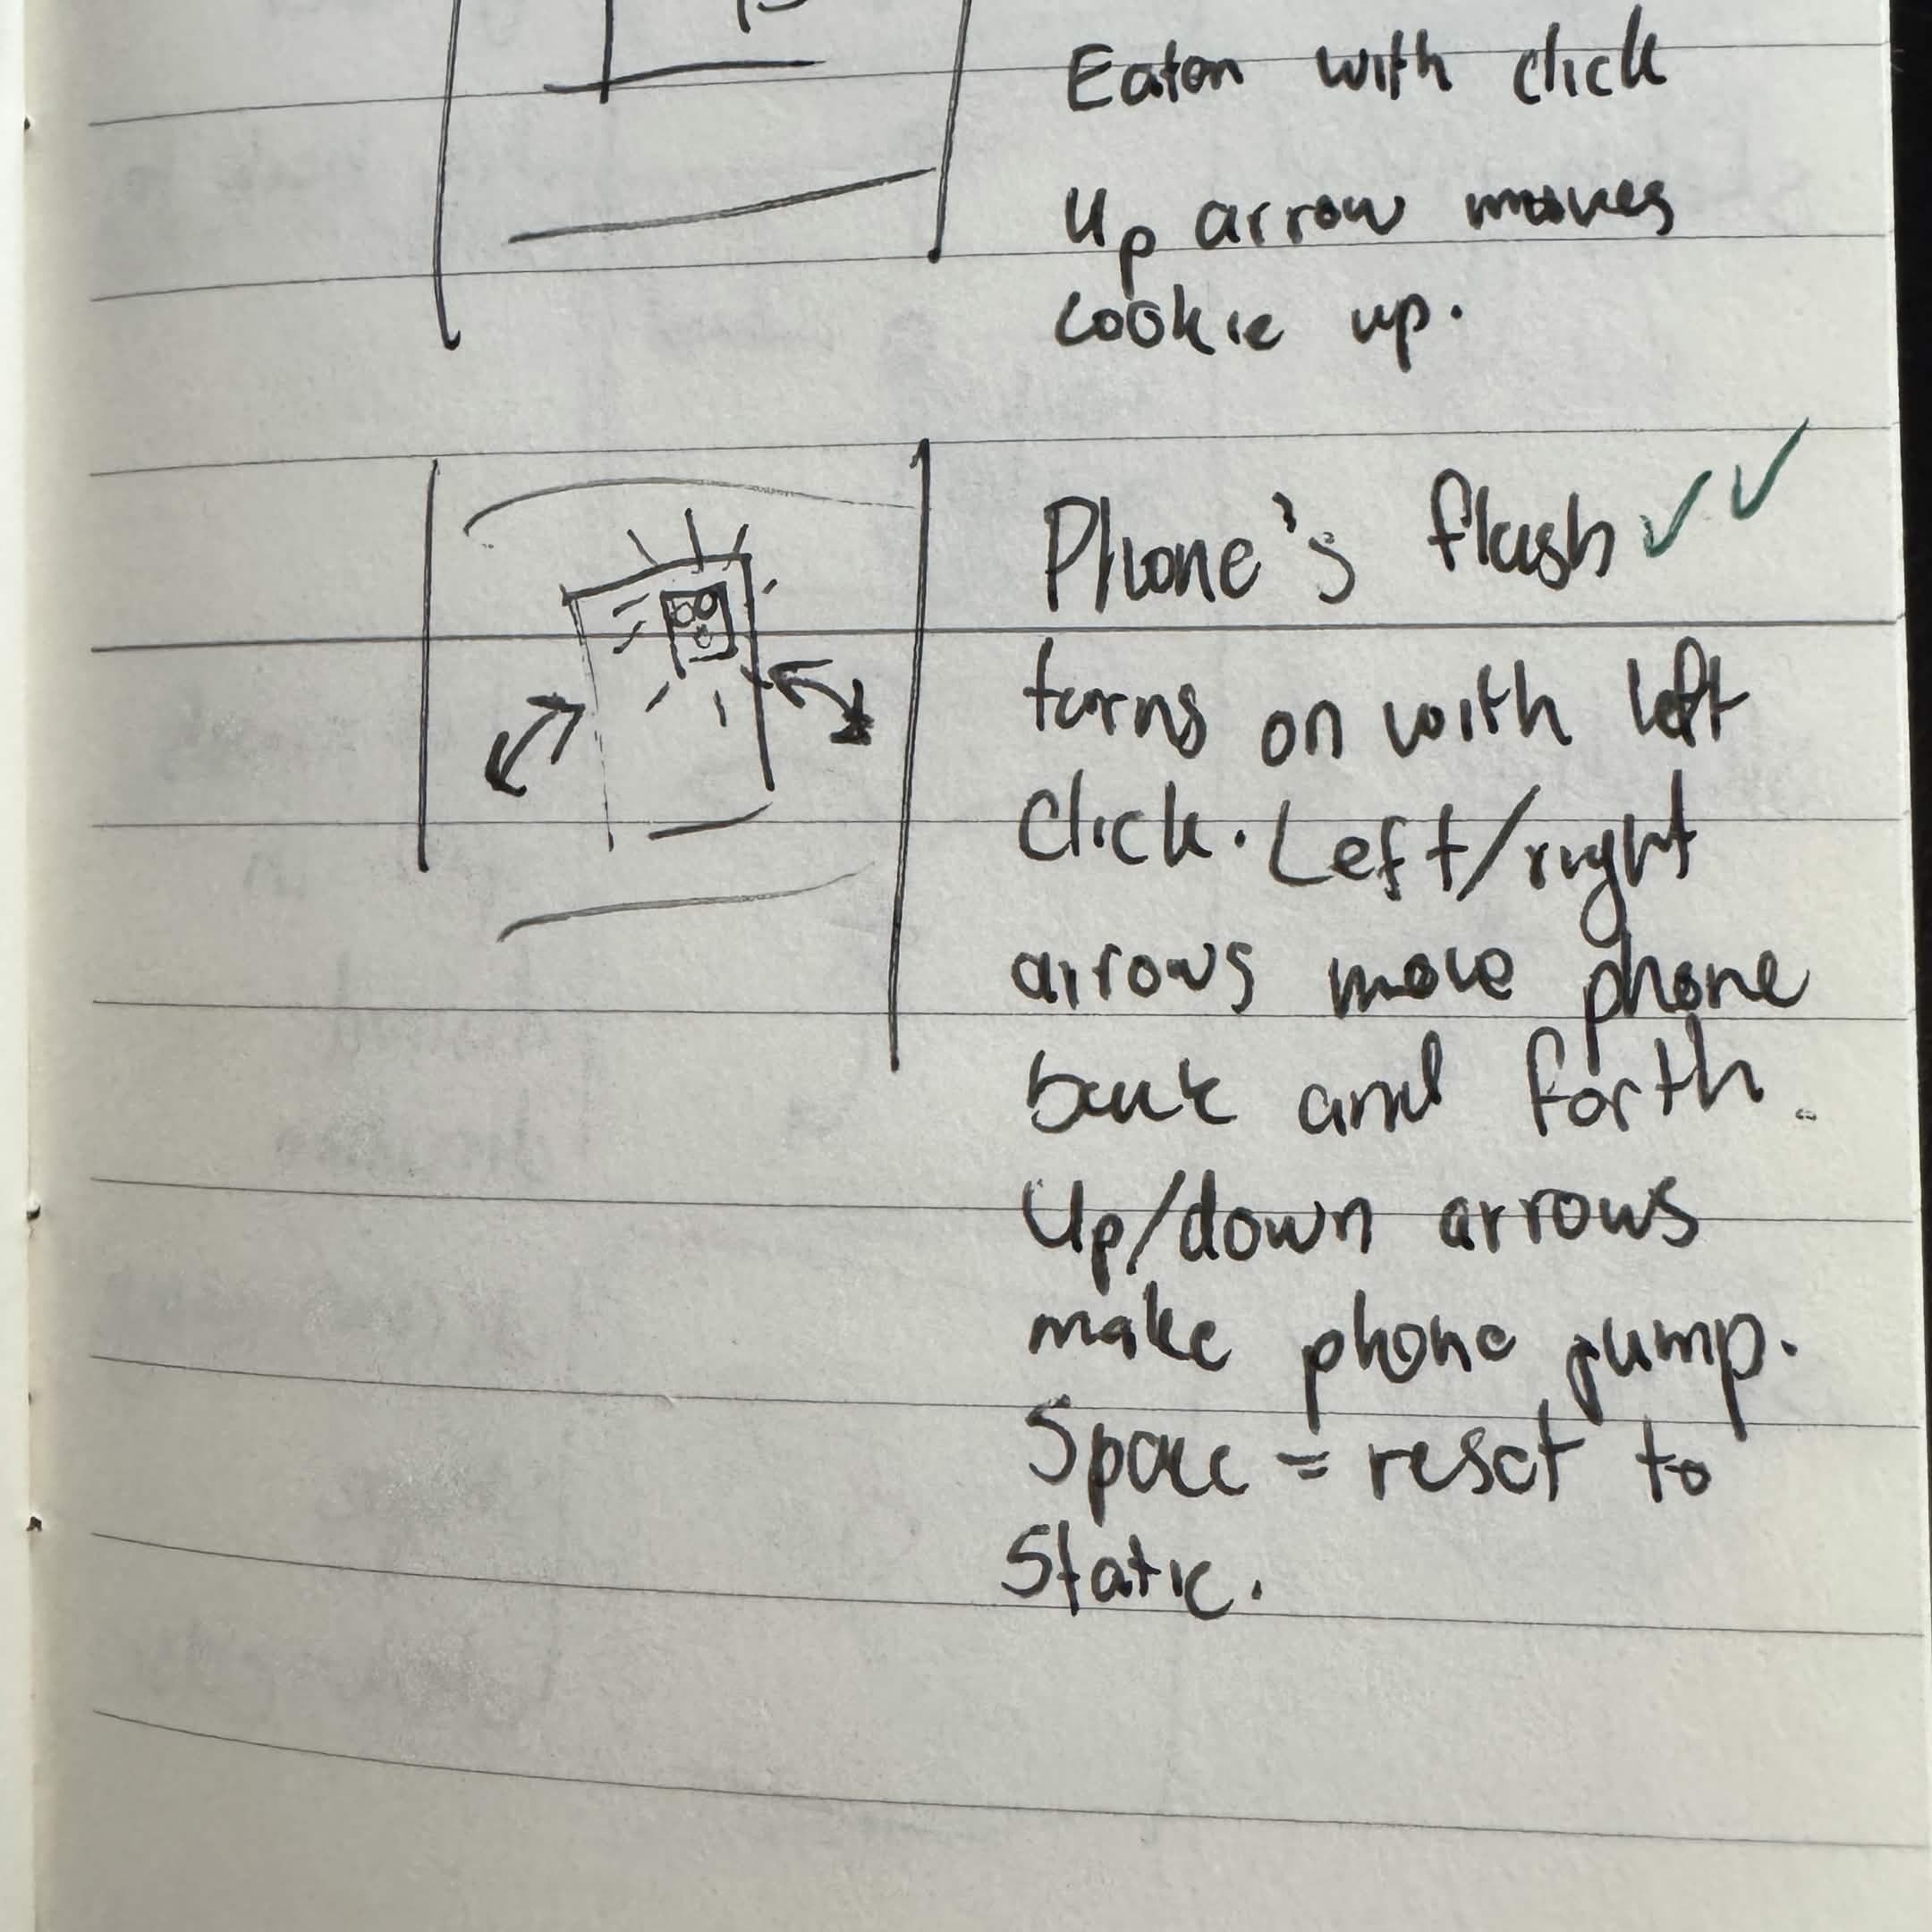 Eaten with click
Up arrow moves
cookie up.
Phone's flash
turns on with left
click. Left/right
arrows move phone
back and forth.
Up/down arrows
make phone jump.
Space = reset to
Static.